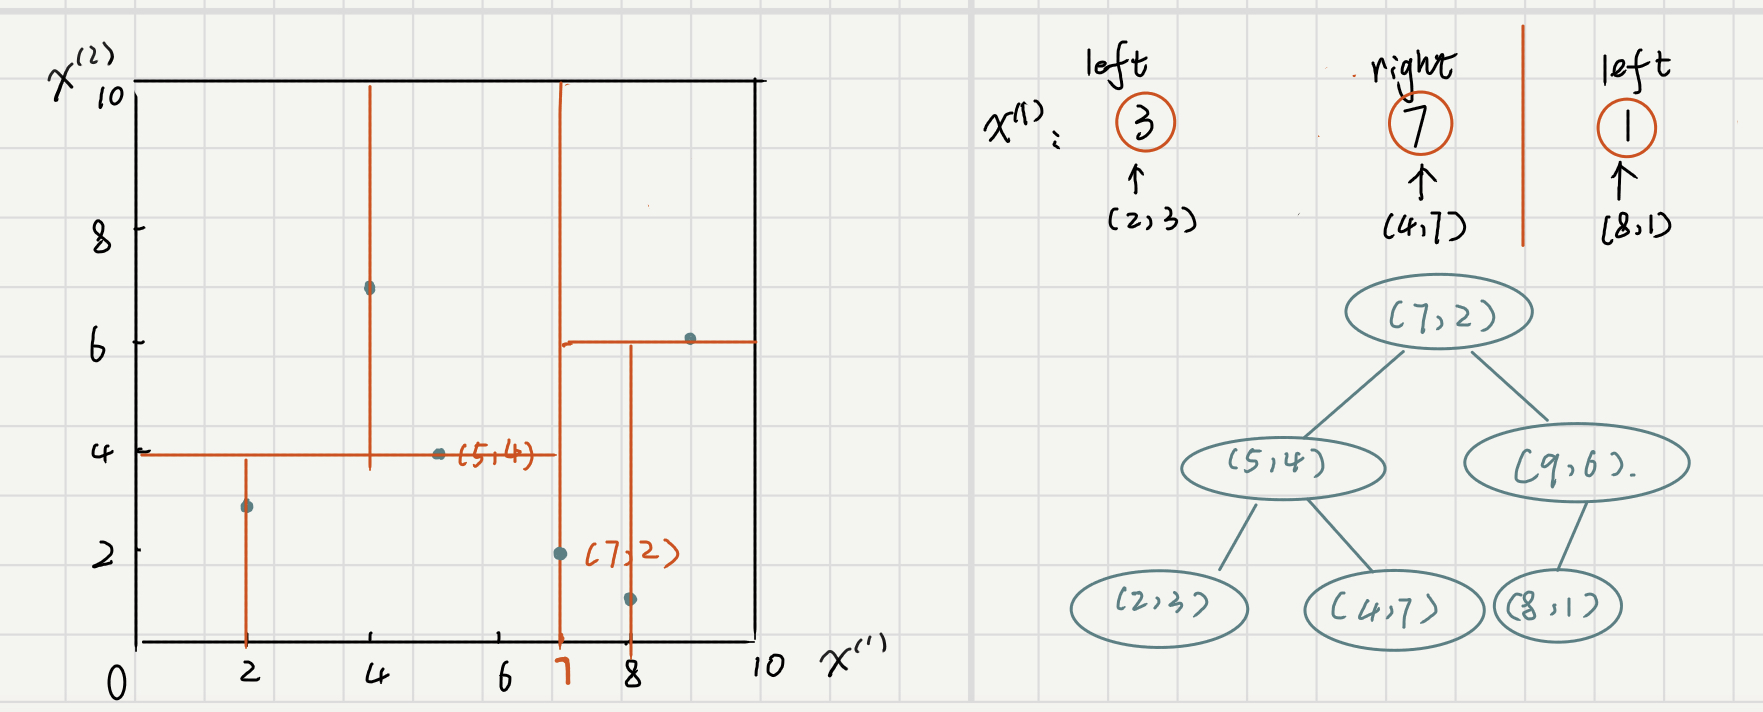 x⁽²⁾
10
8
6
4
2
0
(5,4)
(7,2)
2 4 6 7 8 10 x⁽¹⁾
left right left
x⁽¹⁾: 3 7 1
(2,3) (4,7) (8,1)
(7,2)
(5,4) (9,6).
(2,3) (4,7) (8,1)